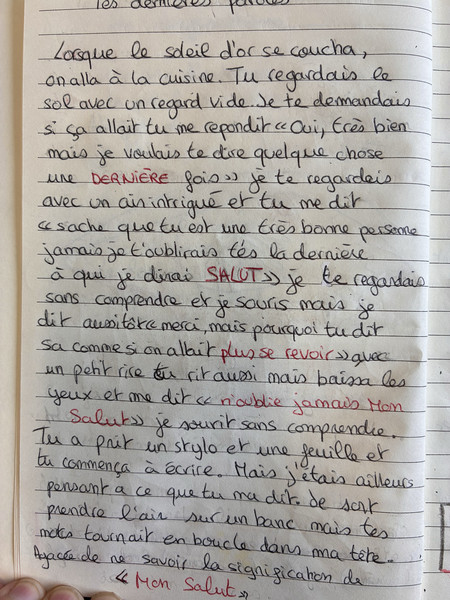 les dernières paroles
Lorsque le soleil d'or se coucha,
on alla à la cuisine. Tu regardais le
sol avec un regard vide. Je te demandais
si ça allait tu me repondit « Oui, très bien
mais je voulais te dire quelque chose
une DERNIÈRE fois » je te regardais
avec un air intrigué et tu me dit
« sache que tu est une très bonne personne
jamais je t'oublirais tés la dernière
à qui je dirai SALUT » je te regardais
sans comprendre et je souris mais je
dit aussitôt « merci, mais pourquoi tu dit
sa comme si on allait plus se revoir » avec
un petit rire tu rit aussi mais baissa les
yeux et me dit « n'oublie jamais Mon
Salut » je sourit sans comprendre.
Tu a prit un stylo et une feuille et
tu commença à écrire. Mais j'étais ailleurs
pensant a ce que tu ma dit. Je sort
prendre l'air sur un banc mais tes
mots tournait en boucle dans ma tête.
Agacée de ne savoir la signification de
« Mon Salut »